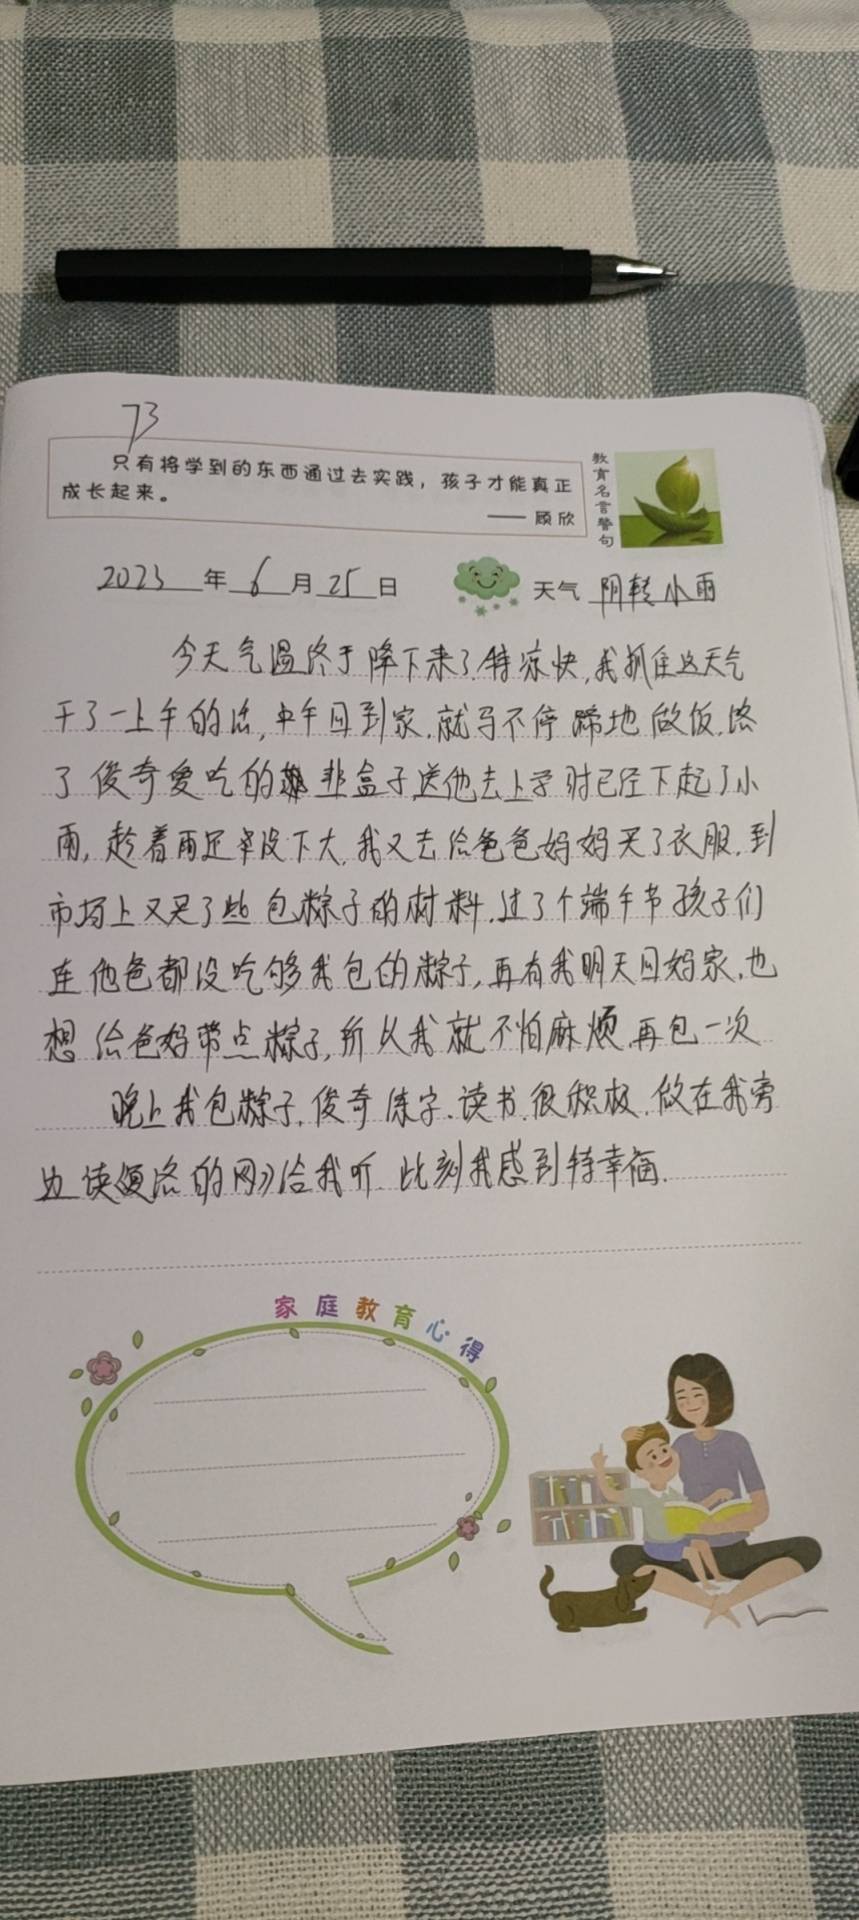 73
只有将学到的东西通过去实践，孩子才能真正
成长起来。
—— 顾欣
教育名言警句
2023年6月25日
天气 阴转小雨
今天气温终于降下来了,特凉快,我抓住这天气
干了一上午的活,中午回到家,就马不停蹄地做饭,烙
了俊奇爱吃的韭盒子送他去上学时已经下起了小
雨,趁着雨还没下大,我又去给爸爸妈妈买了衣服,到
市场上又买了些包粽子的材料,过了个端午节孩子们
连他爸都没吃够我包的粽子,再有我明天回妈家,也
想给爸妈带点粽子,所以我就不怕麻烦,再包一次
晚上我包粽子,俊奇练字、读书,很积极,做在我旁
边读夏洛的网》给我听 此刻我感到特幸福.
家庭教育心得